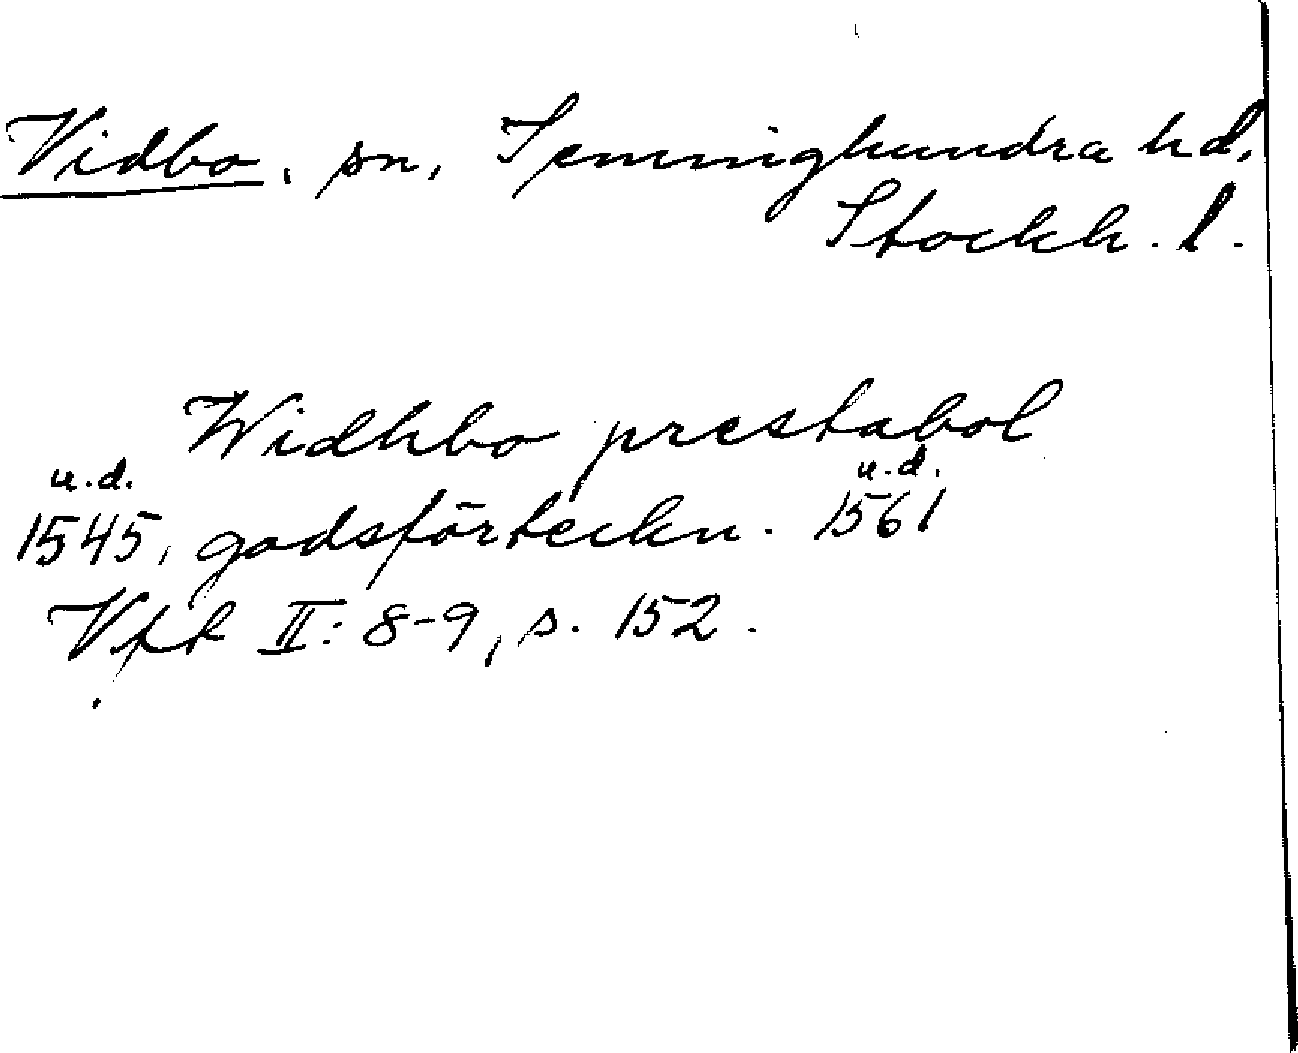 Vidbo, sn, Seminghundra hd,
Stockh. l.
Widhbo prestabol
u.d. u.d.
1545, godsförteckn. 1561
Vfk II: 8-9, s. 152.